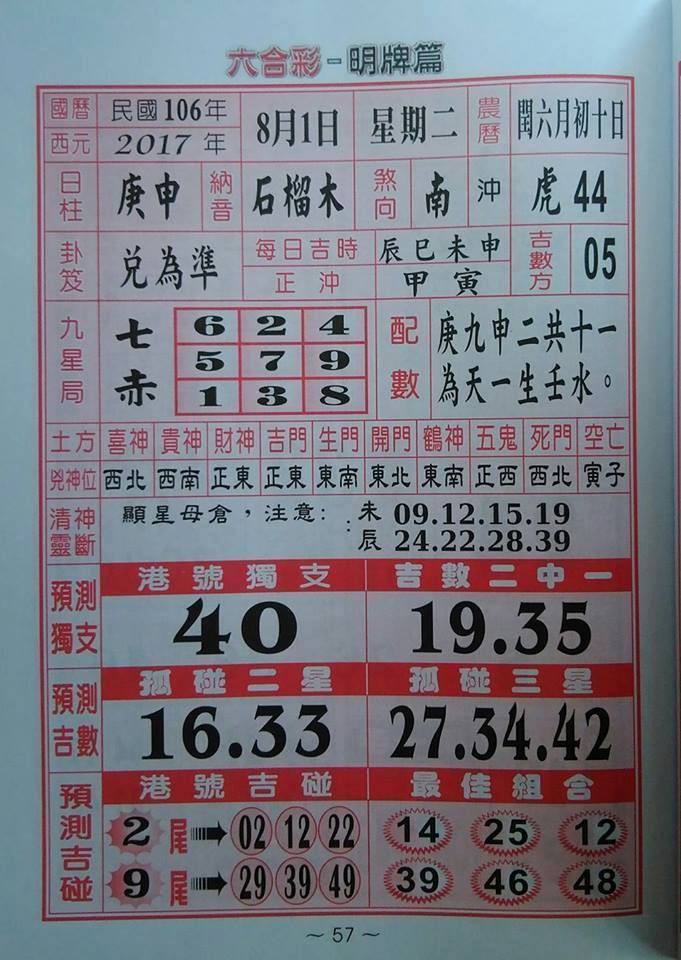 六合彩-明牌篇
國曆 民國106年 8月1日 星期二 農曆 閏六月初十日
西元 2017年
日柱 庚申 納音 石榴木 煞向 南 沖 虎44
卦笈 兌為準 每日吉時 辰巳未申 吉數方 05
正沖 甲寅
九星局 七赤 6 2 4 配數 庚九申二共十一
5 7 9 為天一生壬水。
1 3 8
土方 喜神 貴神 財神 吉門 生門 開門 鶴神 五鬼 死門 空亡
兇神位 西北 西南 正東 正東 東南 東北 東南 正西 西北 寅子
清神靈斷 顯星母倉，注意: : 未 09.12.15.19
辰 24.22.28.39
預測獨支 港號獨支 吉數二中一
40 19.35
預測吉數 孤碰二星 孤碰三星
16.33 27.34.42
預測吉碰 港號吉碰 最佳組合
2尾 02 12 22 14 25 12
9尾 29 39 49 39 46 48
~57~